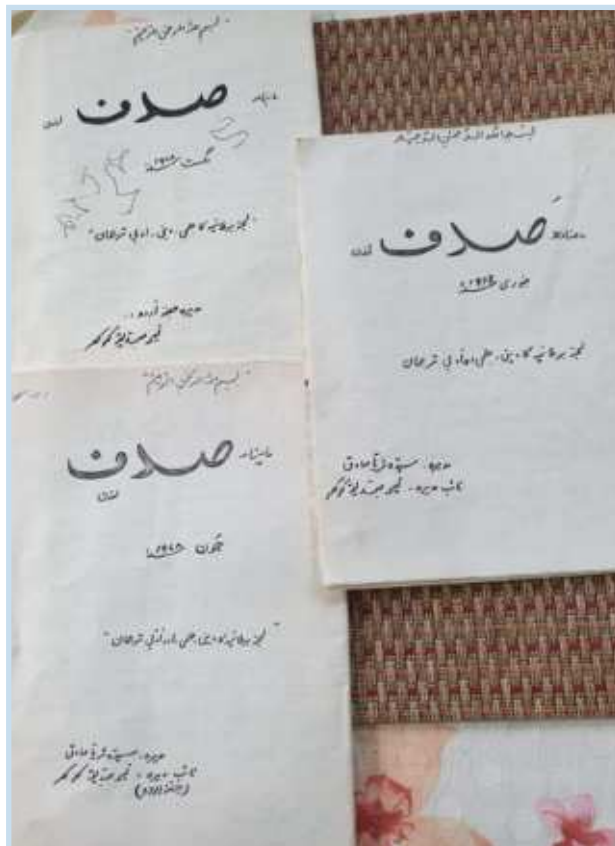 بسم اللہ الرحمٰن الرحیم
ماہنامہ صدف لندن
اگست ۱۹۷۸ء
"لجنہ برطانیہ کا علمی، دینی، ادبی ترجمان"
مدیرہ حصہ اردو
نجمہ صدیقہ کھوکھر
بسم اللہ الرحمٰن الرحیم
ماہنامہ صدف لندن
جنوری
لجنہ برطانیہ کا دینی، علمی اور ادبی ترجمان
مدیرہ۔ سیدہ ثریا صادق
نائب مدیرہ۔ نجمہ صدیقہ کھوکھر
"بسم اللہ الرحمٰن الرحیم"
ماہنامہ صدف
لندن
جون ۱۹۷۸ء
"لجنہ برطانیہ کا دینی، علمی اور ادبی ترجمان"
مدیرہ۔ سیدہ ثریا صادق
نائب مدیرہ۔ نجمہ صدیقہ کھوکھر